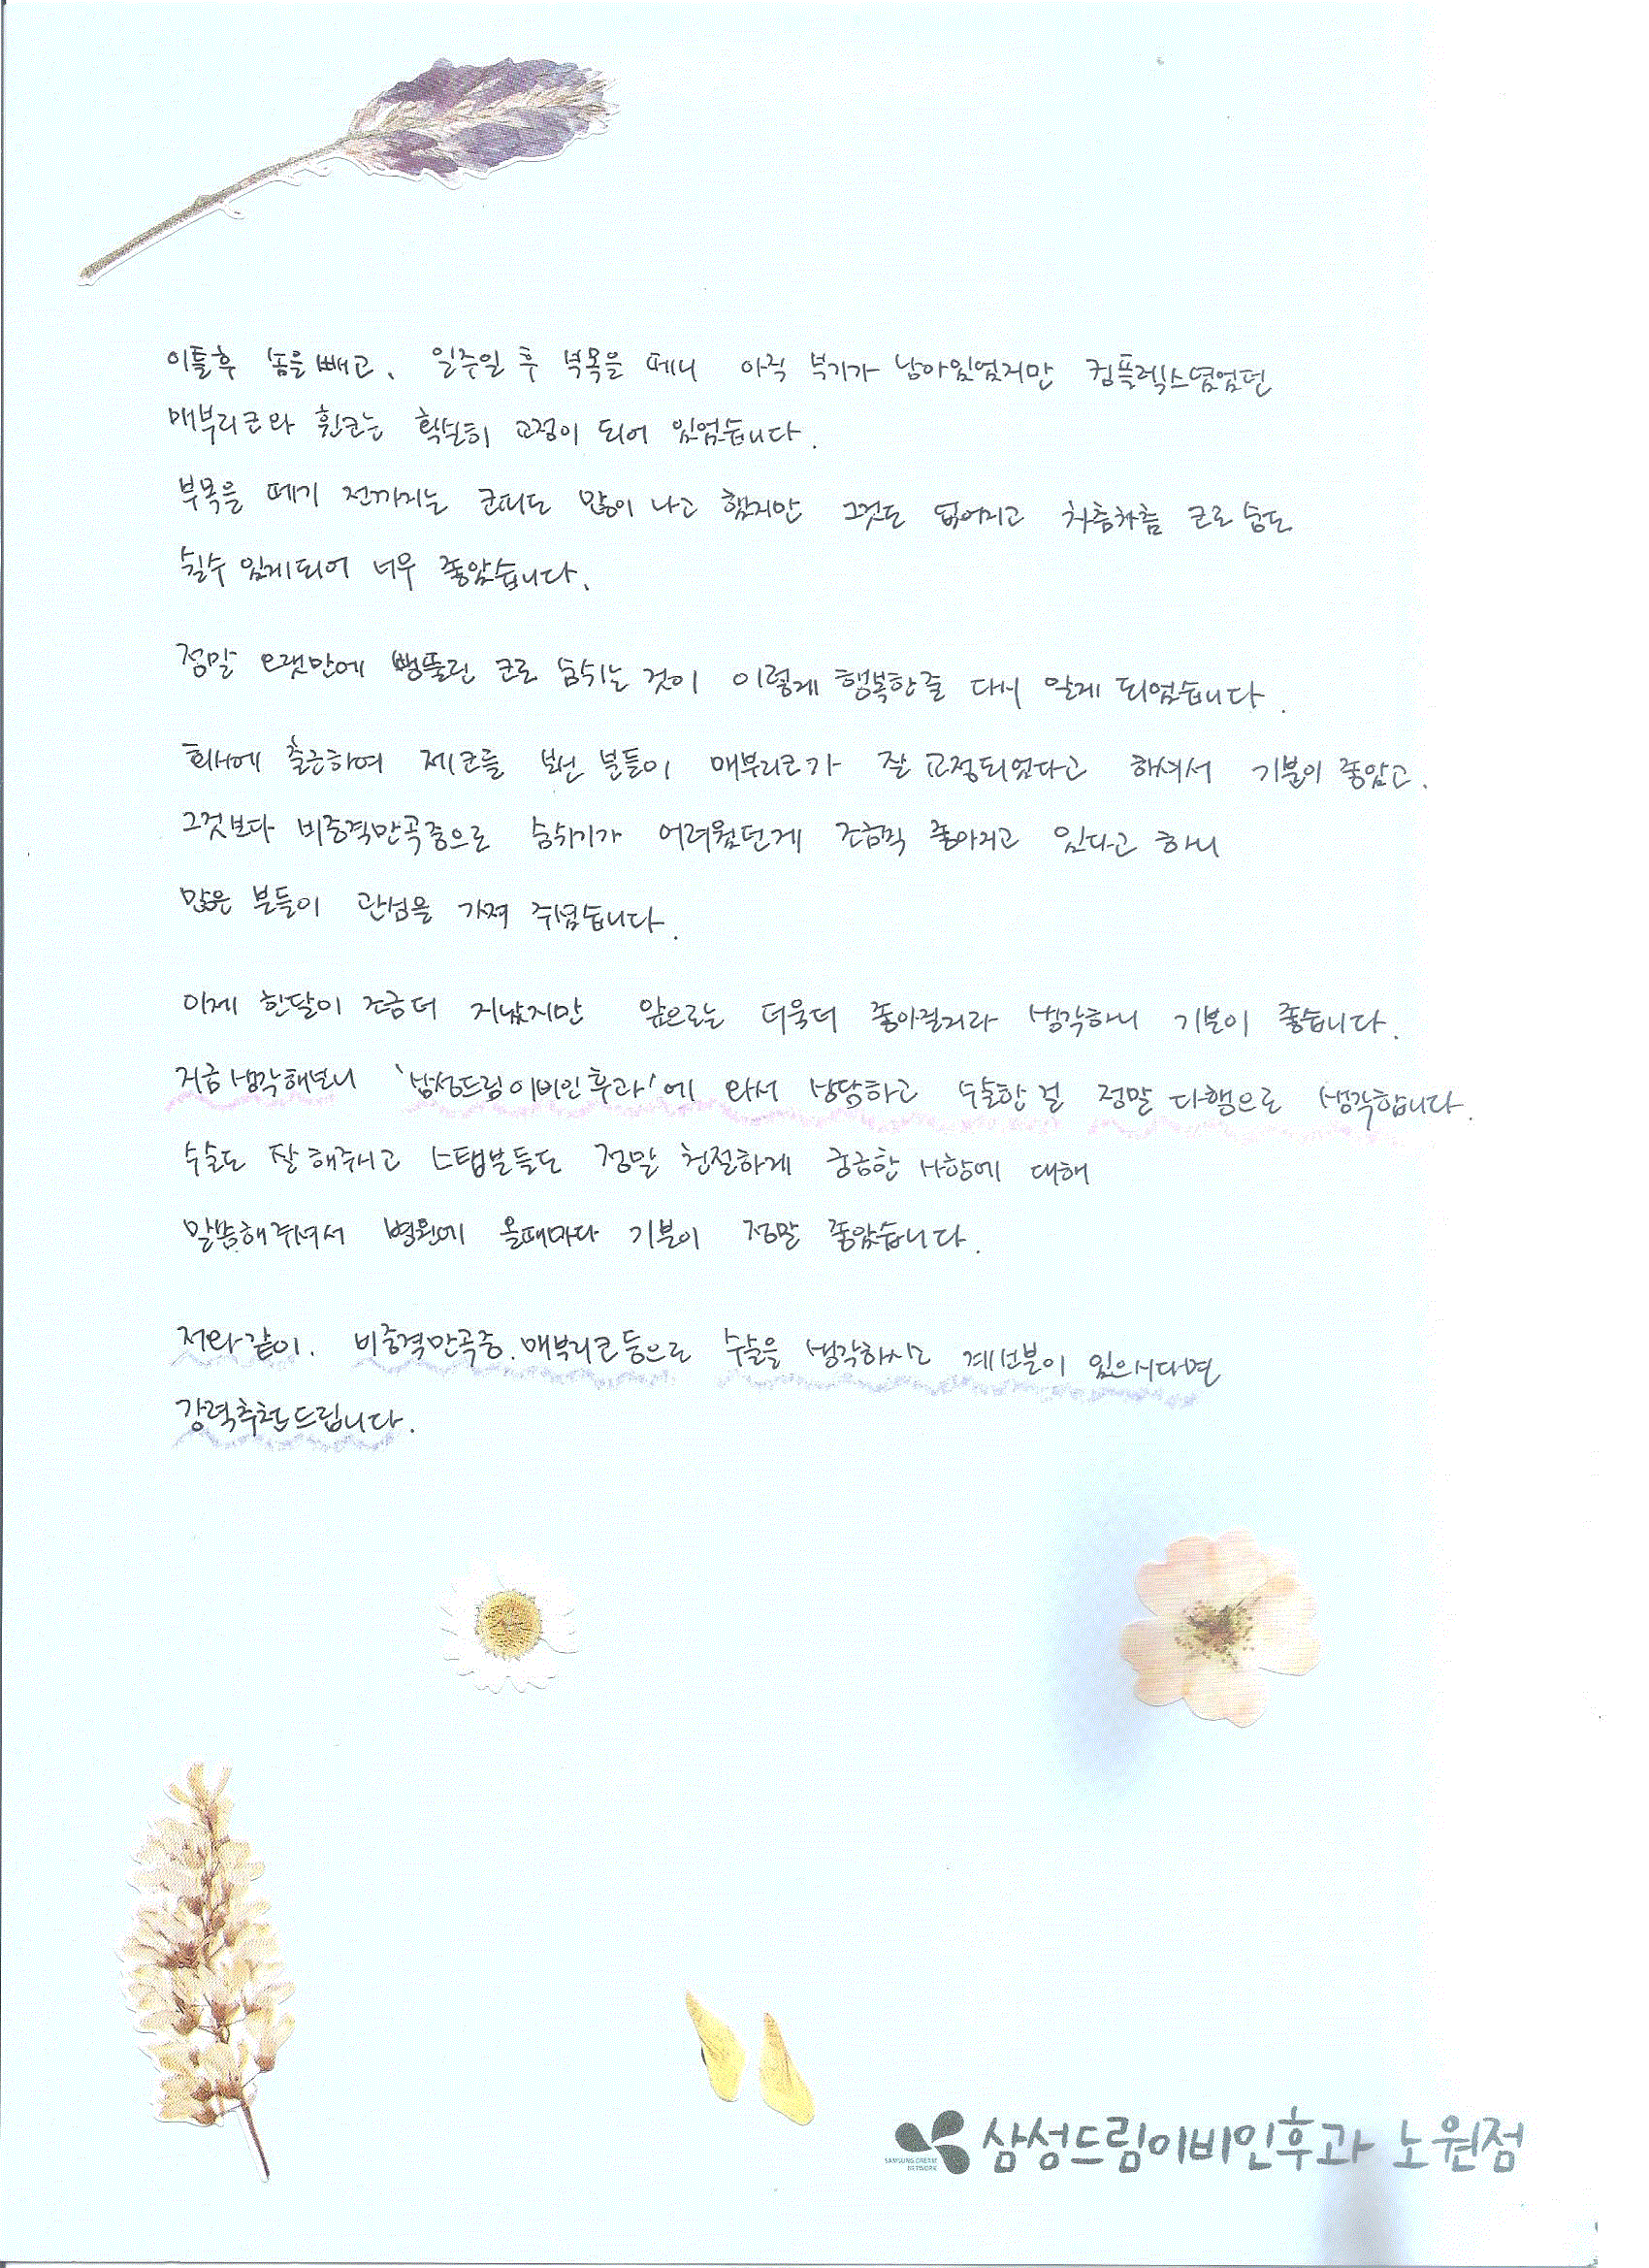 이틀후 솜을 빼고, 일주일 후 부목을 떼니 아직 부기가 남아있었지만 컴플렉스였었던
매부리코와 휜코는 확실히 교정이 되어 있었습니다.
부목을 떼기 전까지는 코피도 많이 나고 했지만 그것도 없어지고 차츰차츰 코로 숨도
쉴수 있게되어 너무 좋았습니다.
정말 오랫만에 뻥뚫린 코로 숨쉬는 것이 이렇게 행복한줄 다시 알게 되었습니다.
회사에 출근하여 제코를 보신 분들이 매부리코가 잘 교정되었다고 하셔서 기분이 좋았고.
그것보다 비중격만곡증으로 숨쉬기가 어려웠던게 조금씩 좋아지고 있다고 하니
많은 분들이 관심을 가져 주셨습니다.
이제 한달이 조금더 지났지만 앞으로는 더욱더 좋아질거라 생각하니 기분이 좋습니다.
지금생각해보니 '삼성드림이비인후과'에 와서 상담하고 수술한 걸 정말 다행으로 생각합니다.
수술도 잘 해주시고 스탭분들도 정말 친절하게 궁금한 사항에 대해
말씀해주셔서 병원에 올때마다 기분이 정말 좋았습니다.
저와같이. 비중격만곡증.매부리코등으로 수술을 생각하시고 계신분이 있으시다면
강력추천드립니다.
삼성드림이비인후과 노원점
SAMSUNG DREAM
NETWORK